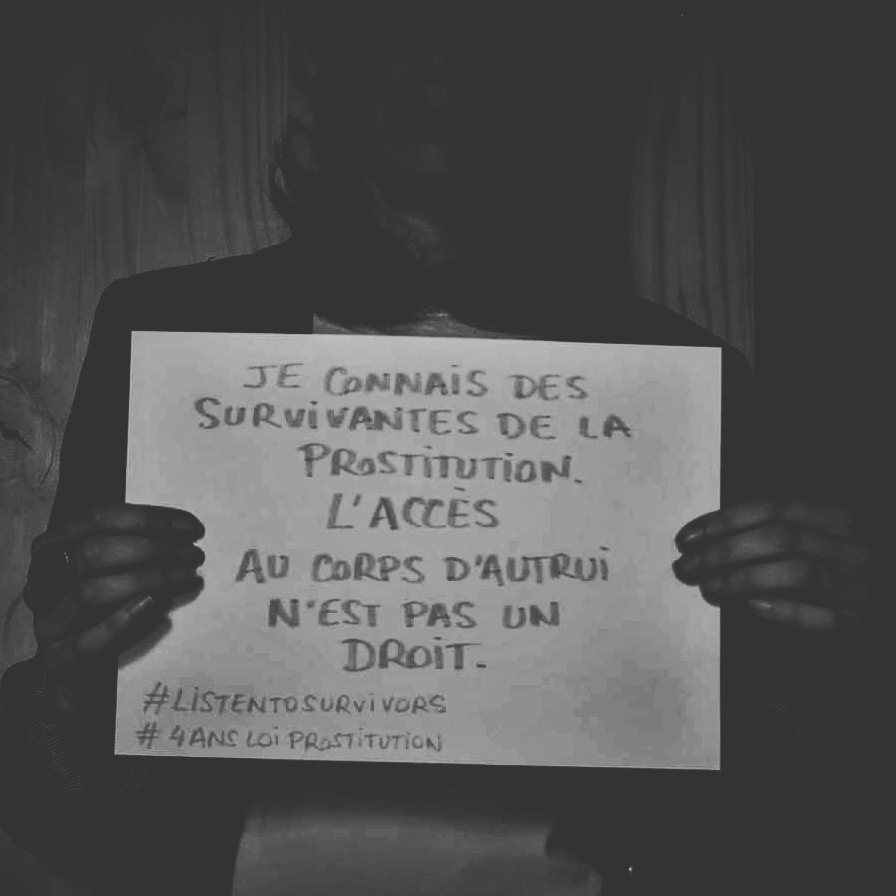 JE CONNAIS DES
SURVIVANTES DE LA
PROSTITUTION.
L'ACCÈS
AU CORPS D'AUTRUI
N'EST PAS UN
DROIT.
#LISTENTOSURVIVORS
# 4ANS LOI PROSTITUTION